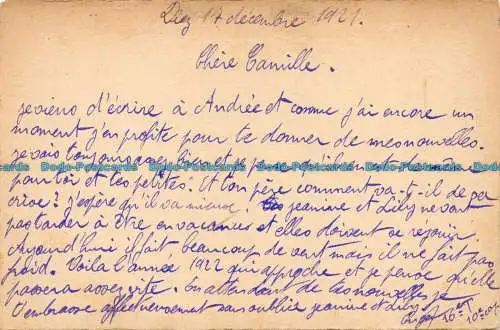 17 décembre 1921.
Chère Camille.
je viens d'écrire à Andrée et comme j'ai encore un
moment j'en profite pour te donner de mes nouvelles.
je vais toujours assez bien et je pense qu'il en est de même
pour toi et tes petites. Et ton père comment va-t-il de sa
crise? j'espère qu'il va mieux. jeanine et Lily ne vont
pas tarder à être en vacances et elles doivent se réjouir
Aujourd'hui il fait beaucoup de vent mais il ne fait pas
froid. Voila l'année 1922 qui approche et je pense qu'elle
passera assez vite. En attendant de tes nouvelles je
t'embrasse affectueusement sans oublier jeanine et Lily
Dodo-Postcards Dodo-Postcards Dodo-Postcards Dodo-Postcards